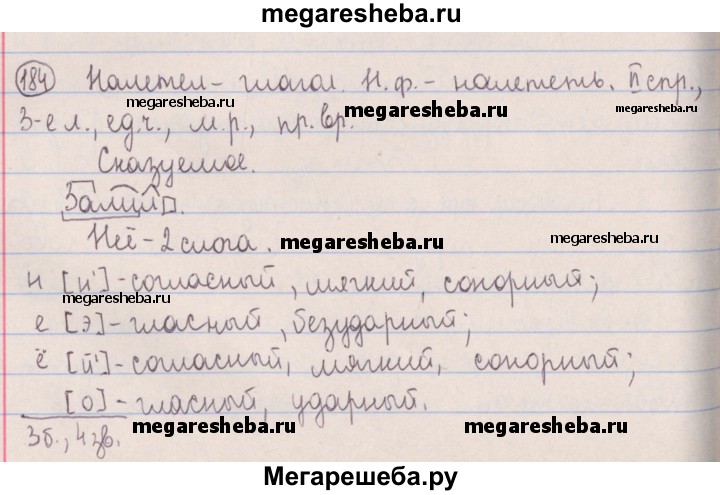 megaresheba.ru
184 Налетел – глагол. Н.ф. – налететь. II спр.,
megaresheba.ru megaresheba.ru
3-е л., ед.ч., м.р., пр.вр.
Сказуемое.
Залил.
Неё – 2 слога. megaresheba.ru megaresheba.ru
н [н'] – согласный, мягкий, сонорный;
megaresheba.ru
е [э] – гласный, безударный;
ё [й'] – согласный, мягкий, сонорный;
[о] – гласный, ударный.
3б., 4зв. megaresheba.ru megaresheba.ru
Мегарешеба.ру